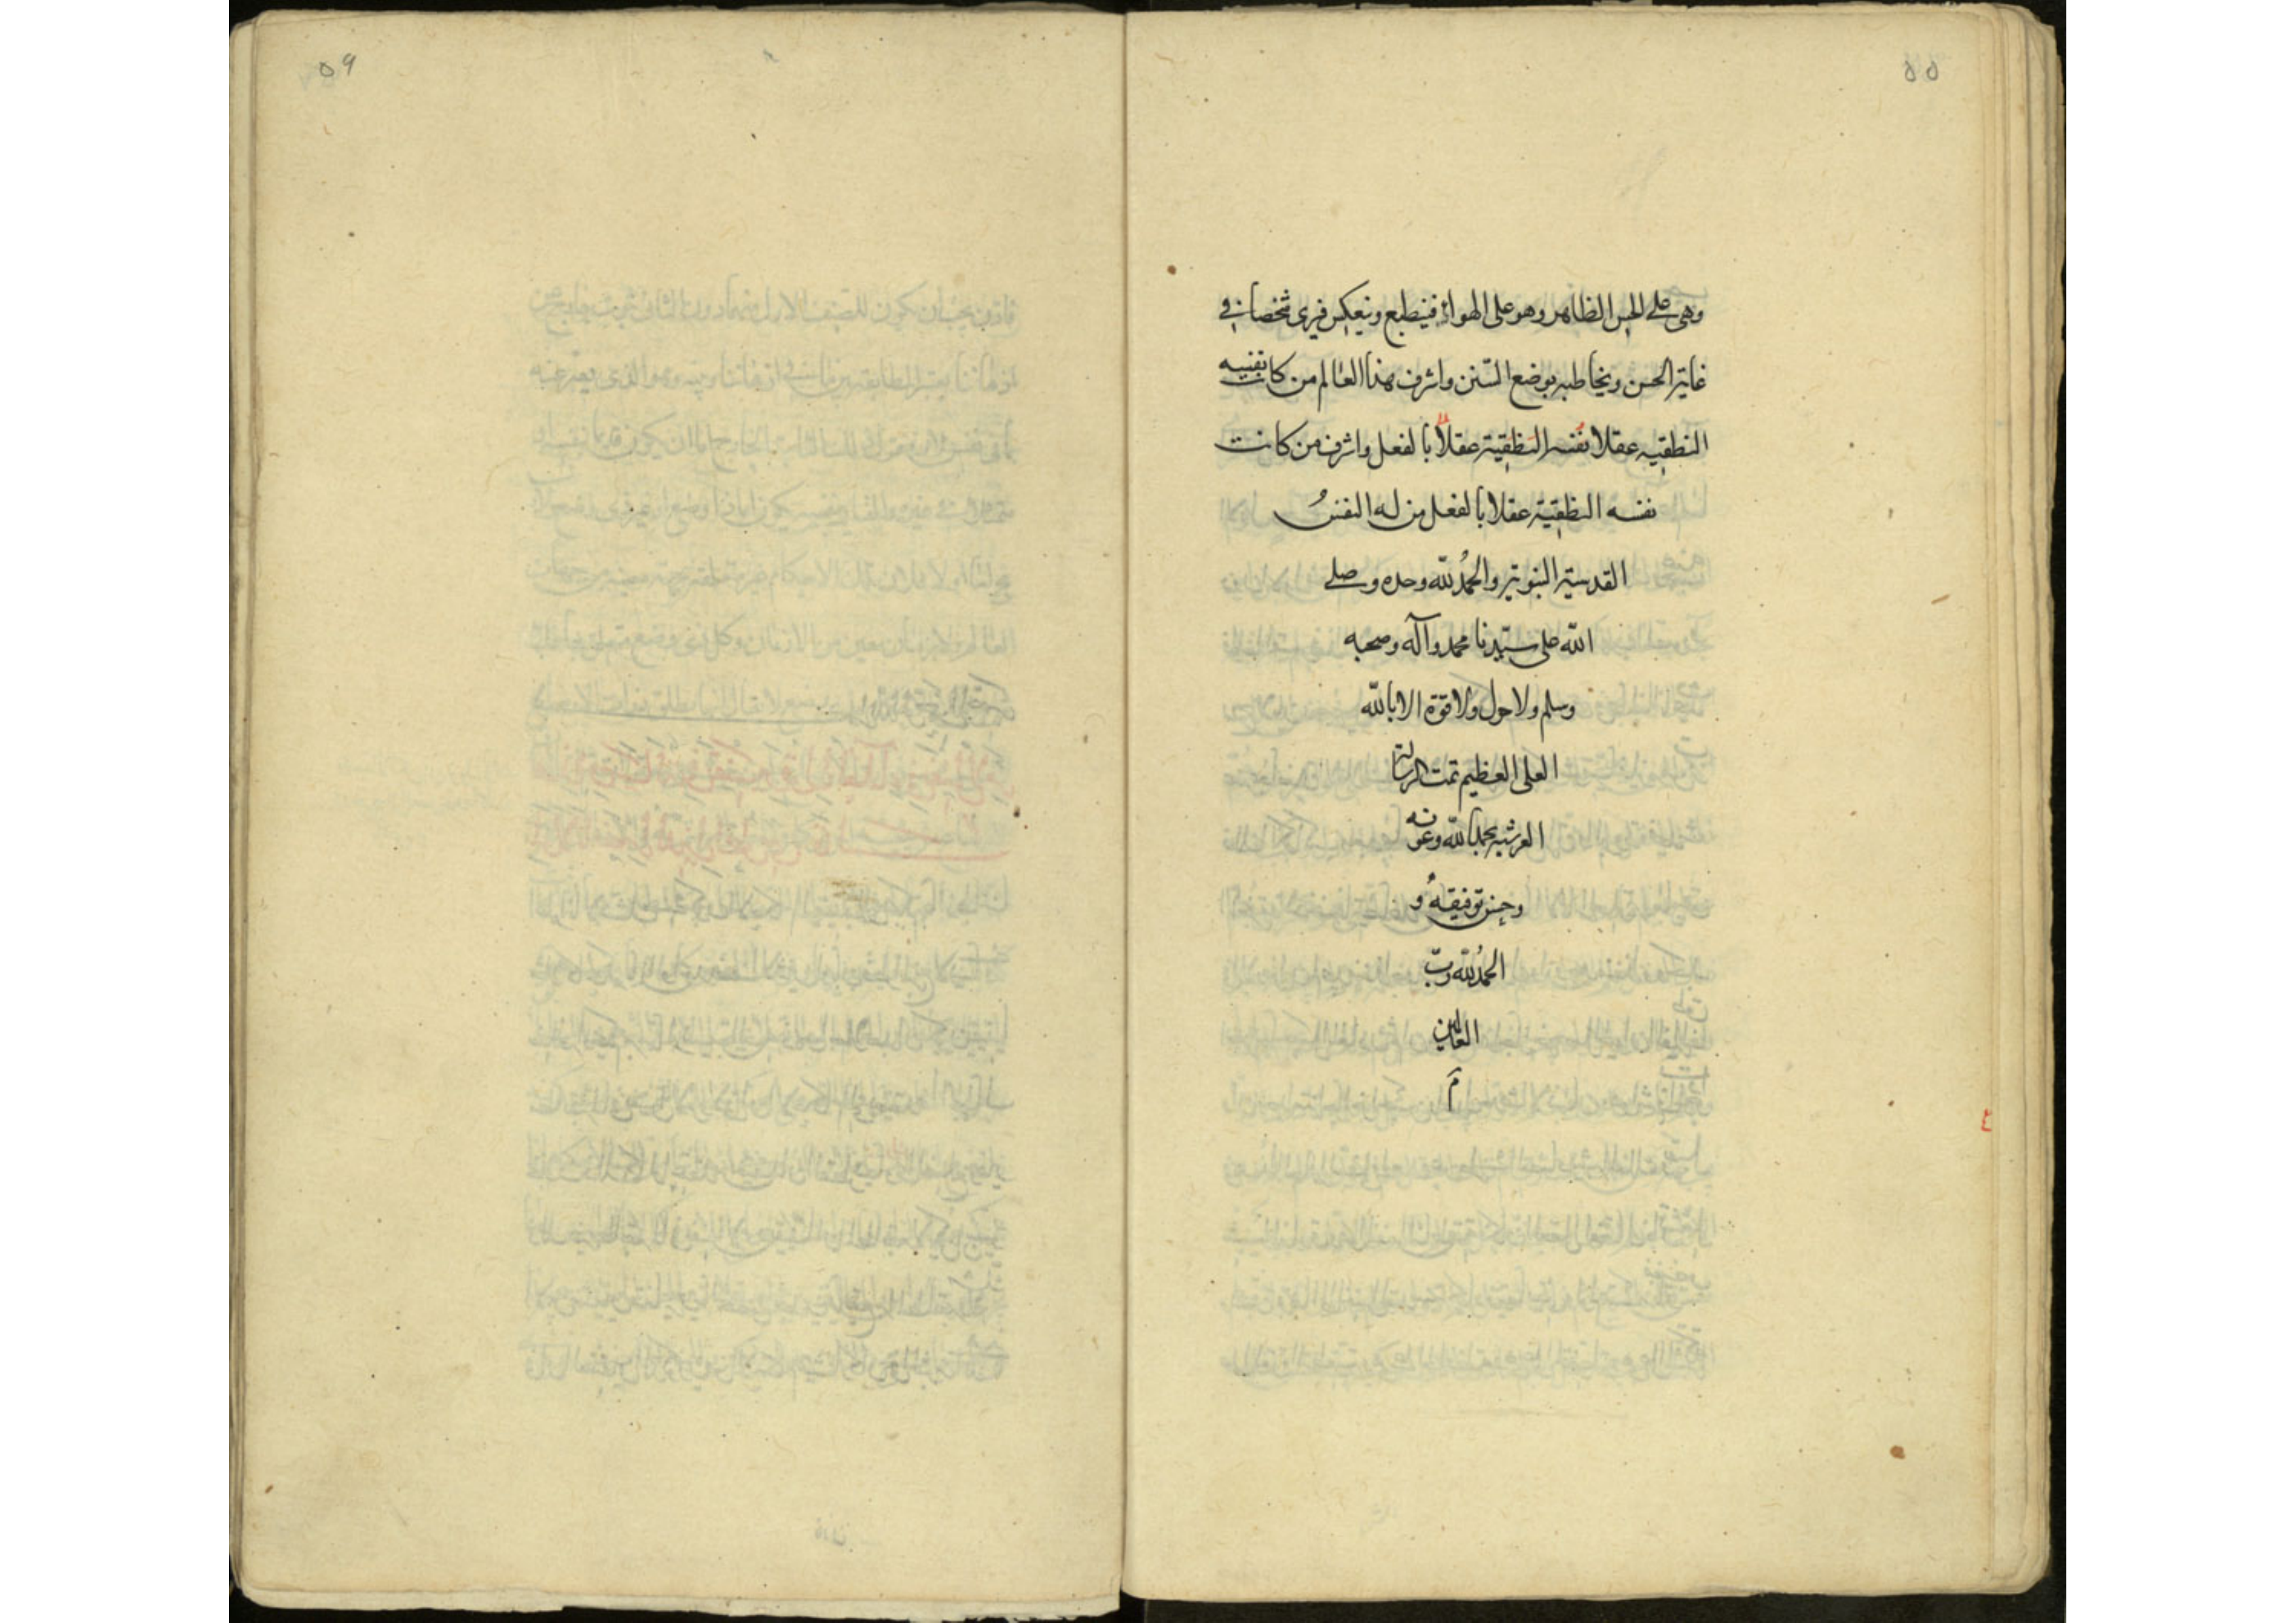 ٥٥
وهى على الحس الظاهر وهو على الهواء فينطبع وينعكس فيرى شخصا فى
غاية الحسن ويخاطبه بوضع السنن واشرف هذا العالم من كانت نفسه
النطقيه عقلا نفسه النطقية عقلاً بالفعل واشرف من كانت
نفسه النطقية عقلا بالفعل من له النفسُ
القدسية النبوية والحمدُ لله وحده وصلى
الله على سيّدنا محمد وآله وصحبه
وسلم ولا حول ولا قوّة الا بالله
العلى العظيم تمت الرسالة
العرشيه بحمد الله وعونه
وحسن توفيقهُ و
الحمدُ لله ربّ
العالمين
م
٤
٥٩